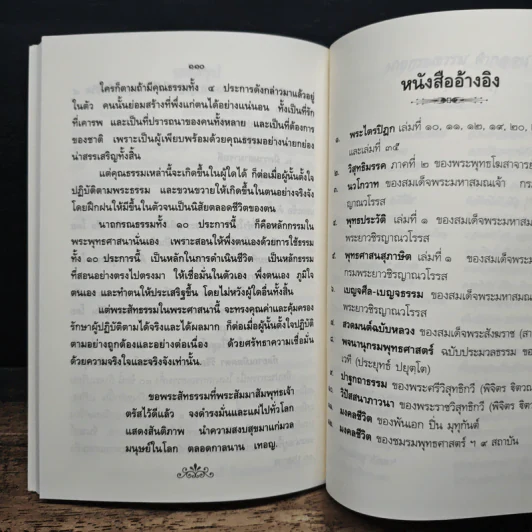 ๑๑๐
ใครก็ตามถ้ามีคุณธรรมทั้ง ๔ ประการดังกล่าวมาแล้วอยู่
ในตัว คนนั้นย่อมสร้างที่พึ่งแก่ตนได้อย่างแน่นอน ทั้งเป็นที่รัก
ที่เคารพ และเป็นที่ปรารถนาของคนทั้งหลาย และเป็นที่ต้องการ
ของชาติ เพราะเป็นผู้เพียบพร้อมด้วยคุณธรรมอย่างน่ายกย่อง
น่าสรรเสริญทั้งสิ้น
แต่คุณธรรมเหล่านี้จะเกิดขึ้นในผู้ใดได้ ก็ต่อเมื่อผู้นั้นตั้งใจ
ปฏิบัติตามพระธรรม และขวนขวายให้เกิดขึ้นในตนอย่างจริงจัง
โดยฝึกฝนให้มีขึ้นในตัวจนเป็นนิสัยตลอดชีวิตของตน
นาถกรณธรรมทั้ง ๑๐ ประการนี้ ก็คือหลักกรรมใน
พระพุทธศาสนานั่นเอง เพราะสอนให้พึ่งตนเองด้วยการใช้ธรรม
ทั้ง ๑๐ ประการนี้ เป็นหลักในการดำเนินชีวิต เป็นหลักธรรม
ที่สอนอย่างตรงไปตรงมา ให้เชื่อมั่นในตัวเอง พึ่งตนเอง ภูมิใจ
ตนเอง และทำตนให้ประเสริฐขึ้น โดยไม่หวังผู้ใดอื่นทั้งสิ้น
แต่พระสัทธรรมในพระศาสนานี้ จะทรงคุณค่าและคุ้มครอง
รักษาผู้ปฏิบัติตามได้จริงและได้ผลมาก ก็ต่อเมื่อผู้นั้นตั้งใจปฏิบัติ
ตามอย่างถูกต้องและอย่างต่อเนื่อง ด้วยศรัทธาความเชื่อมั่น
ด้วยความจริงใจและจริงจังเท่านั้น.
ขอพระสัทธรรมที่พระสัมมาสัมพุทธเจ้า
ตรัสไว้ดีแล้ว จงดำรงมั่นและแผ่ไปทั่วโลก
แสดงสันติภาพ นำความสงบสุขมาแก่มวล
มนุษย์ในโลก ตลอดกาลนาน เทอญ.
หนังสืออ้างอิง
๑. พระไตรปิฎก เล่มที่ ๑๐, ๑๑, ๑๒, ๑๙, ๒๐,
และเล่มที่ ๓๕
๒. วิสุทธิมรรค ภาคที่ ๒ ของพระพุทธโฆสาจารย์
๓. นวโกวาท ของสมเด็จพระมหาสมณเจ้า กร
ญาณวโรรส
๔. พุทธประวัติ เล่มที่ ๑ ของสมเด็จพระมหาสม
พระยาวชิรญาณวโรรส
๕. พุทธศาสนสุภาษิต เล่มที่ ๑ ของสมเด็จพระม
กรมพระยาวชิรญาณวโรรส
๖. เบญจศีล-เบญจธรรม ของสมเด็จพระมหาสม
พระยาวชิรญาณวโรรส
๗. สวดมนต์ฉบับหลวง ของสมเด็จพระสังฆราช (สา
๘. พจนานุกรมพุทธศาสตร์ ฉบับประมวลธรรม ของ
เวที (ประยุทธ์ ปยุตฺโต)
๙. ปาฐกถาธรรม ของพระศรีวิสุทธิกวี (พิจิตร ฐิตวณฺ
๑๐. วิปัสสนาภาวนา ของพระราชวิสุทธิกวี (พิจิตร ฐิต
๑๑. มงคลชีวิต ของพันเอก ปิ่น มุทุกันต์
๑๒. มงคลชีวิต ของชมรมพุทธศาสตร์ ฯ ๙ สถาบัน